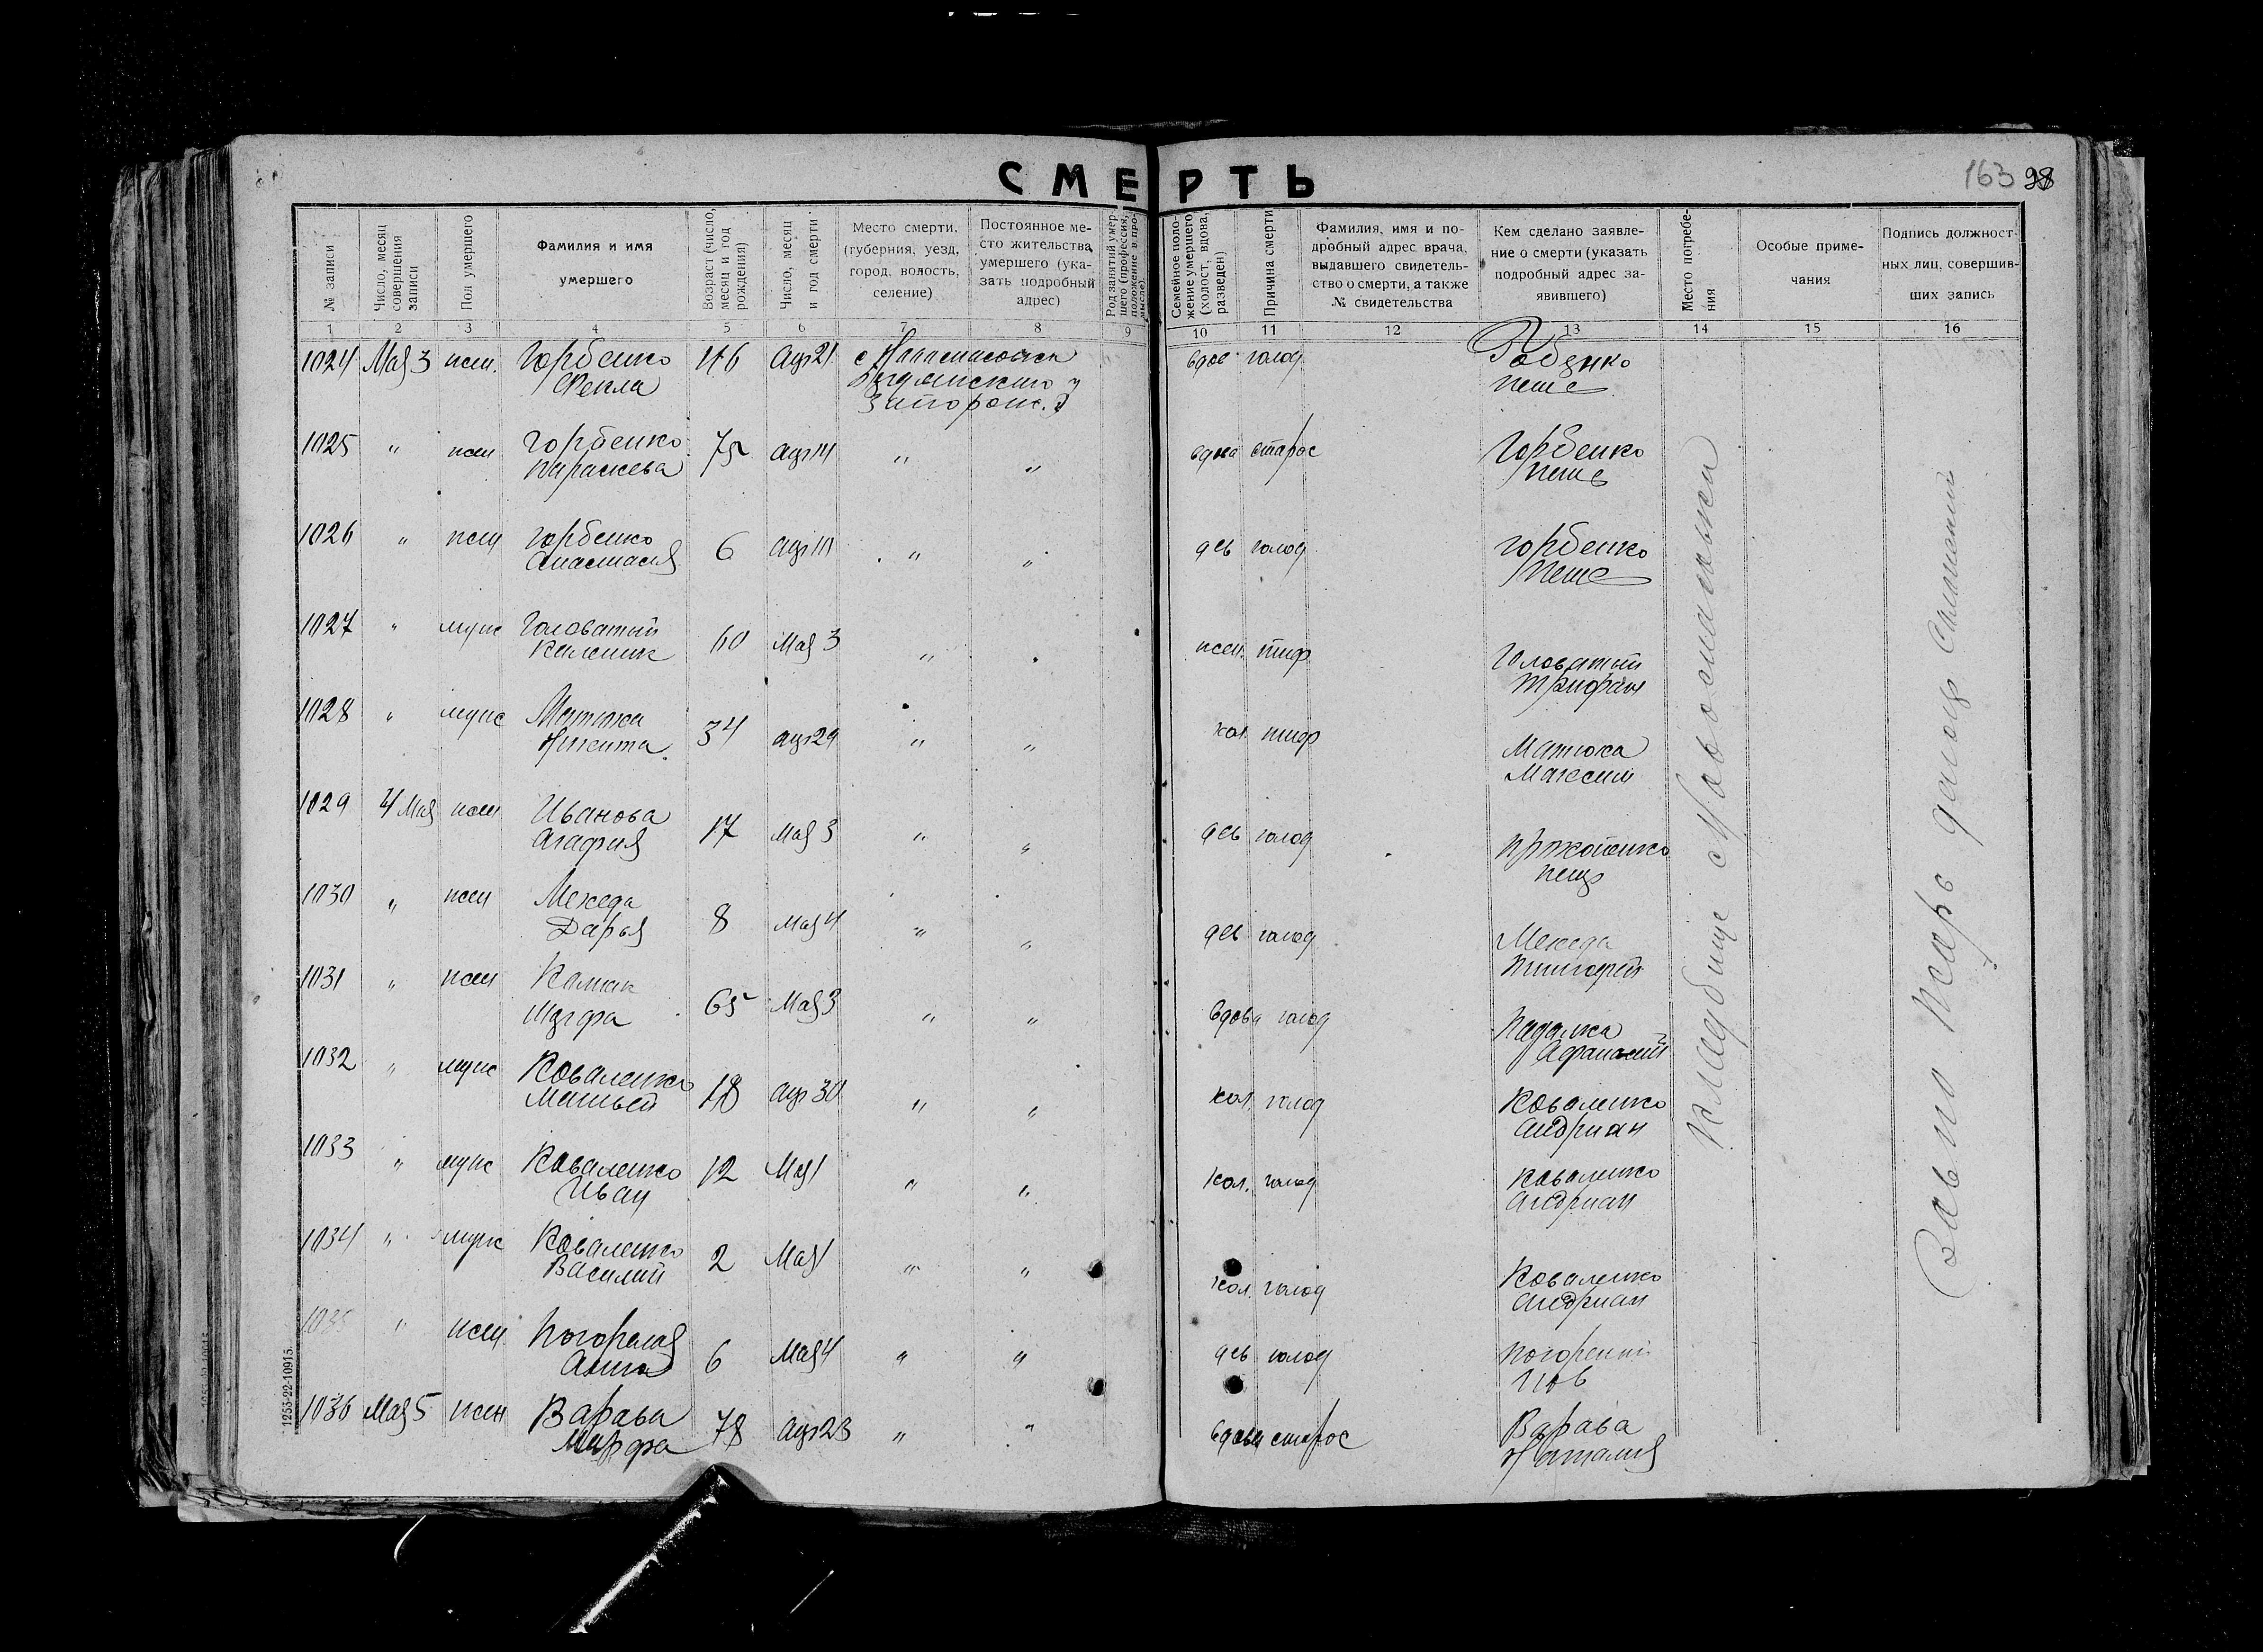 СМЕРТЬ
163 98
№ записи
Число, месяц совершения записи
Пол умершего
Фамилия и имя
умершего
Возраст (число, месяц и год рождения)
Число, месяц и год смерти
Место смерти,
(губерния, уезд,
город, волость,
селение)
Постоянное ме-
сто жительства
умершего (ука-
зать подробный
адрес)
Род занятий умер-
шего (профессия,
положение в про-
мысле)
Семейное поло-
жение умершего
(холост, вдова,
разведен)
Причина смерти
Фамилия, имя и по-
дробный адрес врача,
выдавшего свидетель-
ство о смерти, а также
№ свидетельства
Кем сделано заявле-
ние о смерти (указать
подробный адрес за-
явившего)
Место погребе-
ния
Особые приме-
чания
Подпись должност-
ных лиц, совершив-
ших запись
1 2 3 4 5 6 7 8 9 10 11 12 13 14 15 16
1024 Мая 3 жен. Горбенко 46 Апр 21 вдов голод
Фекла
Запорож.
1025 " жен Горбенко 75 Апр 14 " " вдова старос Горбенко
Параскева
1026 " жен Горбенко 6 " " дев голод Горбенко
Анастасия
1027 " муж Головатый 60 Мая 3 " жен. тиф Головатый
Трифон
1028 " муж Матюха 34 апр 29 " " хол. тиф Матюха
Никита Максим
1029 4 Мая жен Иванова 17 Мая 3 " " дев голод
Агафия
1030 " жен Мекеда 8 Мая 4 " " дев голод Мекеда
Дарья Тимофей
1031 " жен 65 Мая 3 " " вдова голод Падалка
Афанасий
1032 " муж Коваленко 18 апр 30 " " хол. голод Коваленко
Матвей Андриан
1033 " муж Коваленко 12 Мая 1 " " хол. голод Коваленко
Иван Андриан
1034 " муж Коваленко 2 Мая 1 " " хол. голод Коваленко
Василий Андриан
1035 " жен Погорелая 6 Мая 4 " " дев голод
Анна Иов
1036 Мая 5 жен Варава 78 Апр 23 " " вдова старос Варава
Марфа Наталия
Кладбище с. Новоспасовка
1253-22-10915.